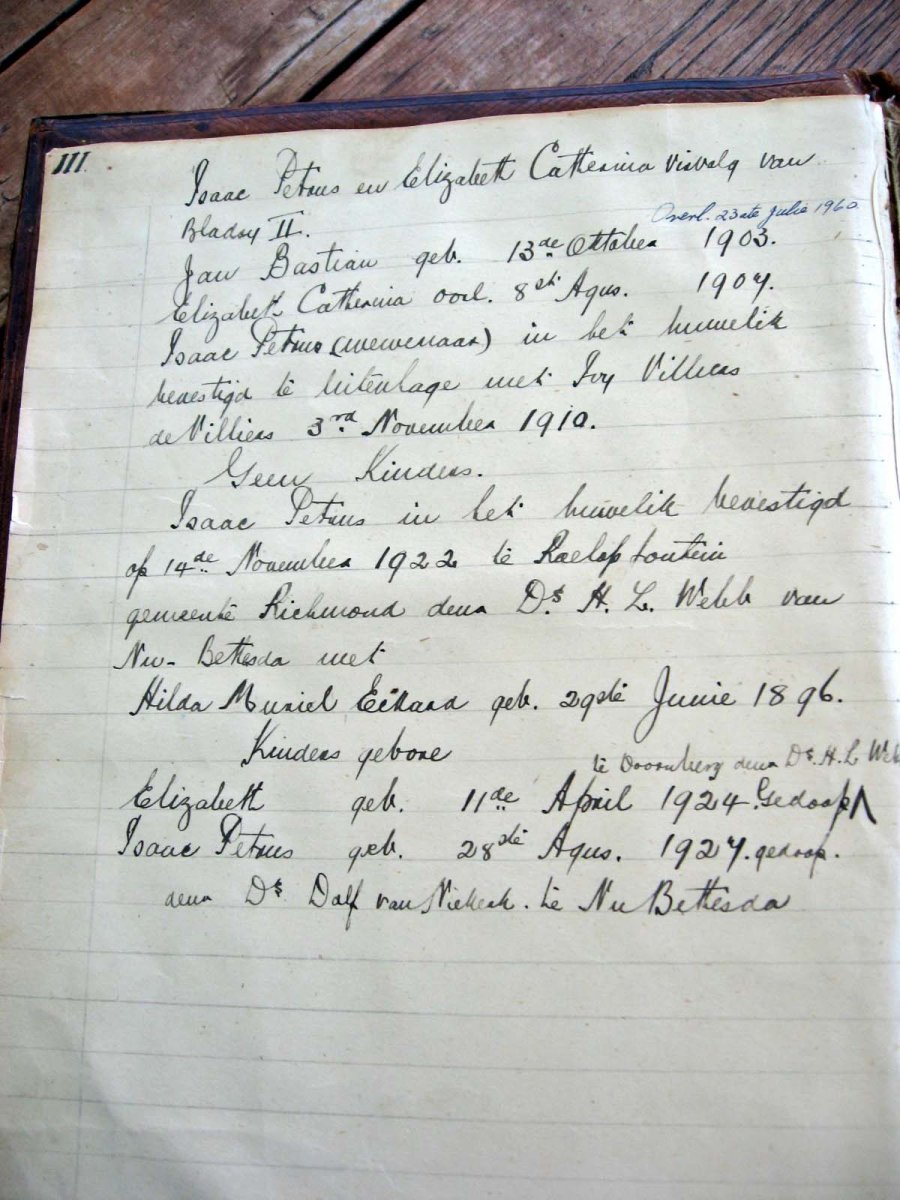 III.
Isaac Petrus en Elizabeth Catherina vervolg van
Bladsy II.
Overl. 23ste Julie 1960
Jan Bastian geb. 13de Oktober 1903.
Elizabeth Catherina oorl. 8ste Agus. 1907.
Isaac Petrus (wewenaar) in het huwelik
bevestigd te Uitenhage met Ivy Villiers
de Villiers 3rd November 1910.
Geen Kinders.
Isaac Petrus in het huwelik bevestigd
op 14de November 1922 te Roelopfontein
gemeente Richmond deur Ds H. L. Webb van
Nu-Bethesda met
Hilda Muriel Eckard geb. 29ste Junie 1896.
Kinders gebore
te Doornberg deur Ds. H. L. Web
Elizabeth geb. 11de April 1924 Gedoop
Isaac Petrus geb. 28ste Agus. 1927. gedoop.
deur Ds Dolf van Niekerk. te Nu Bethesda